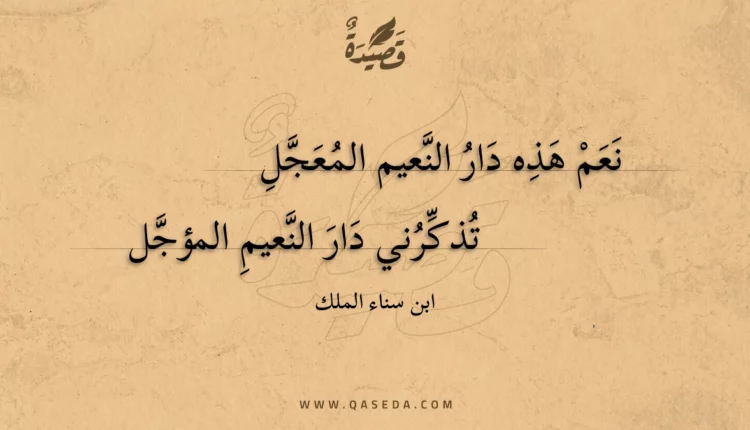 قَصِيْدَةٌ
نَعَمْ هَذِه دَارُ النَّعيم المُعَجَّلِ
تُذكِّرُني دَارَ النَّعيمِ المؤجَّل
ابن سناء الملك
WWW.QASEDA.COM